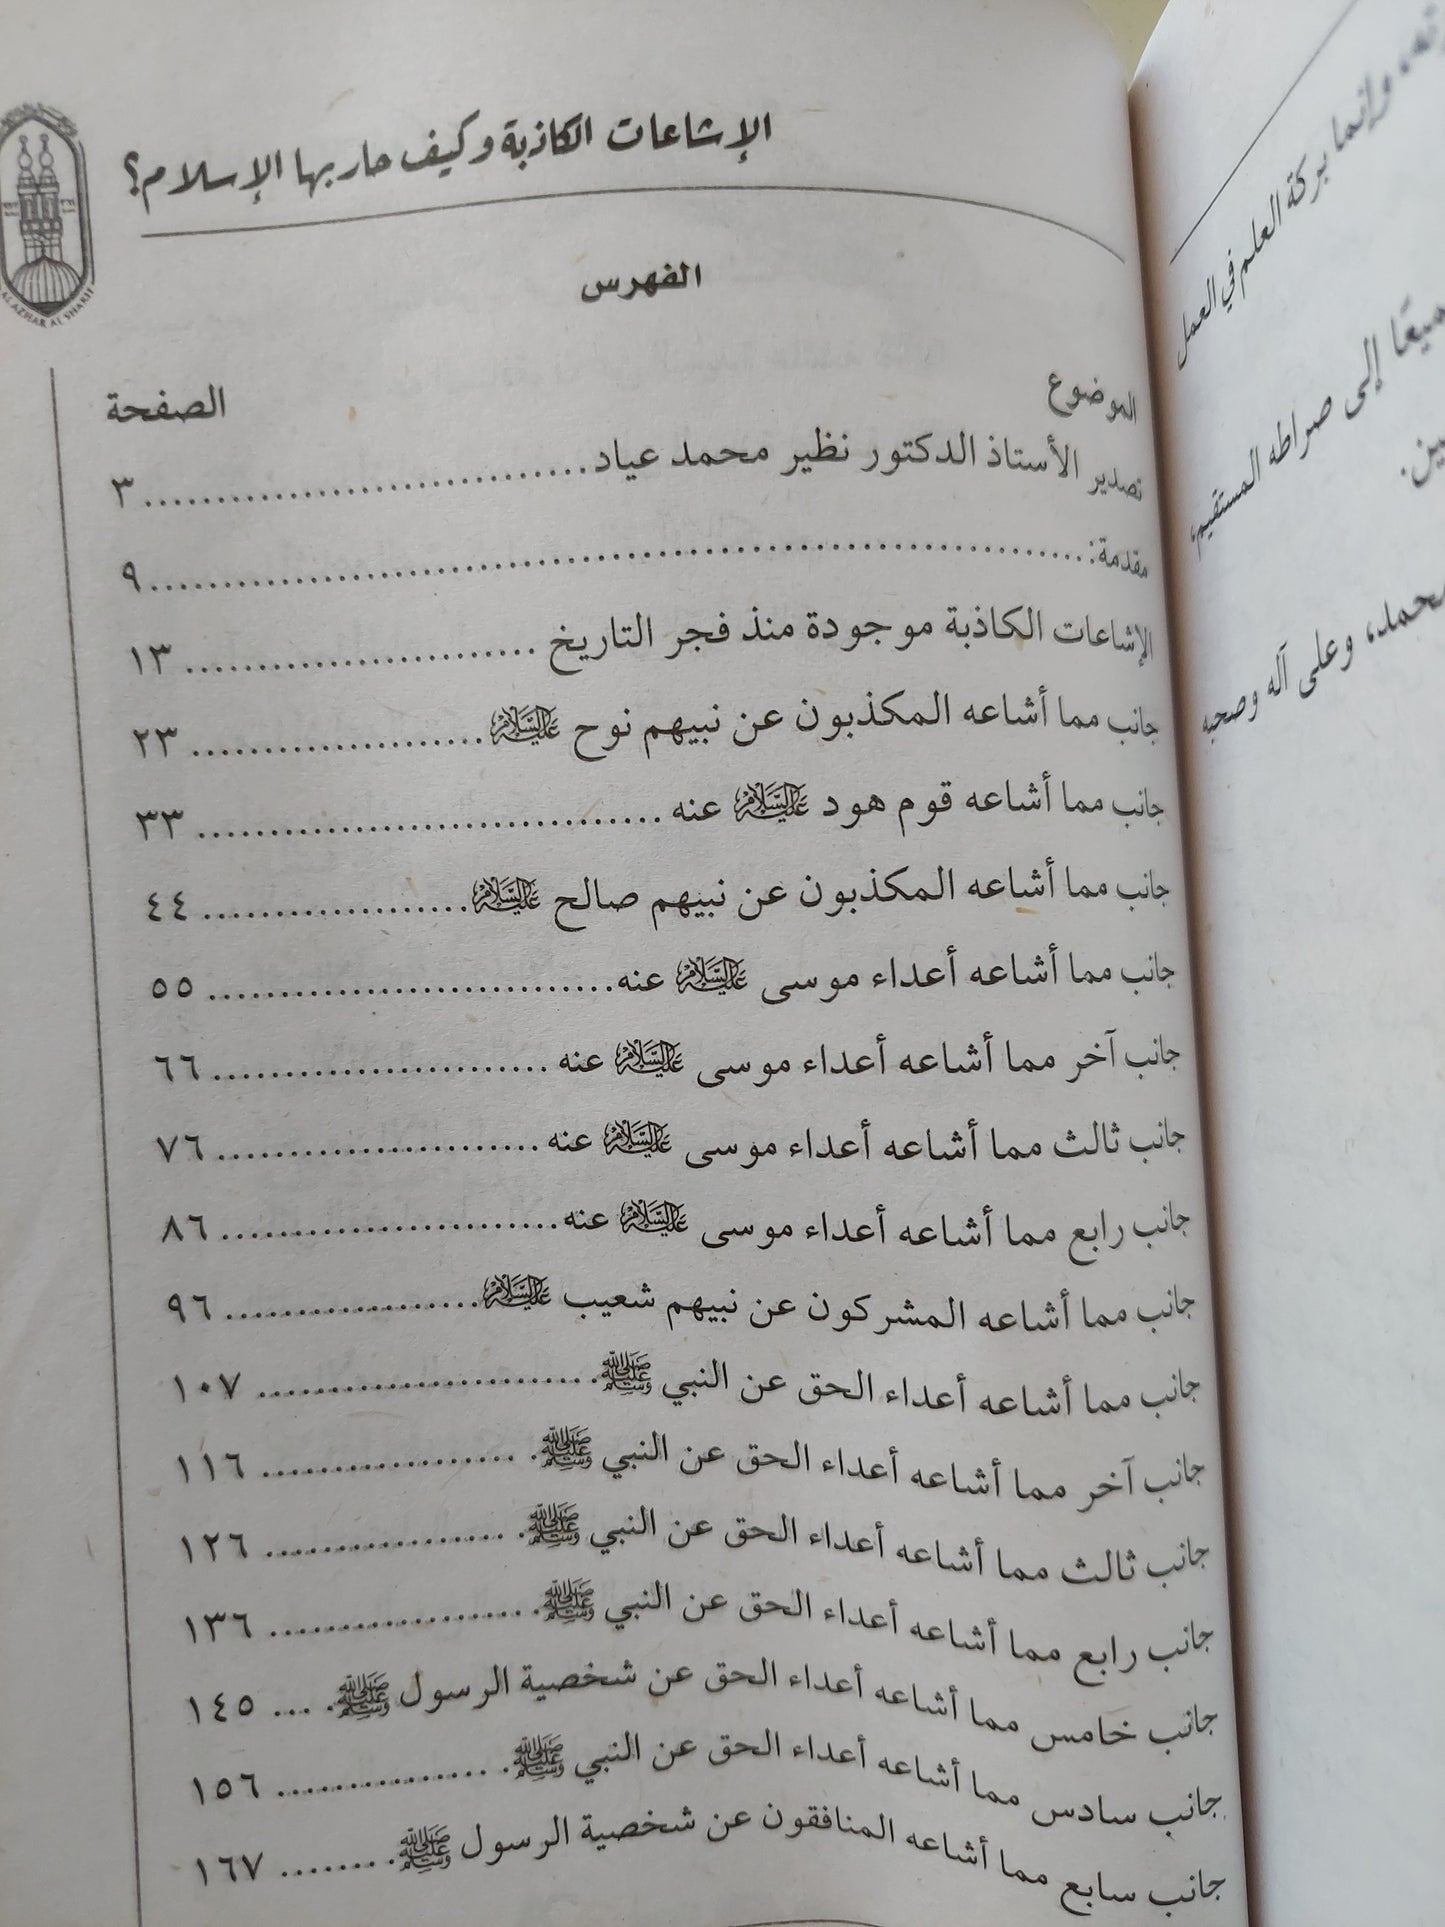 الإشاعات الكاذبة وكيف حاربها الإسلام؟
الفهرس
الموضوع الصفحة
تصدير الأستاذ الدكتور نظير محمد عياد ٣
مقدمة: ٩
الإشاعات الكاذبة موجودة منذ فجر التاريخ ١٣
جانب مما أشاعه المكذبون عن نبيهم نوح عليه السلام ٢٣
جانب مما أشاعه قوم هود عليه السلام عنه ٣٣
جانب مما أشاعه المكذبون عن نبيهم صالح عليه السلام ٤٤
جانب مما أشاعه أعداء موسى عليه السلام عنه ٥٥
جانب آخر مما أشاعه أعداء موسى عليه السلام عنه ٦٦
جانب ثالث مما أشاعه أعداء موسى عليه السلام عنه ٧٦
جانب رابع مما أشاعه أعداء موسى عليه السلام عنه ٨٦
جانب مما أشاعه المشركون عن نبيهم شعيب عليه السلام ٩٦
جانب مما أشاعه أعداء الحق عن النبي ﷺ ١٠٧
جانب آخر مما أشاعه أعداء الحق عن النبي ﷺ ١١٦
جانب ثالث مما أشاعه أعداء الحق عن النبي ﷺ ١٢٦
جانب رابع مما أشاعه أعداء الحق عن النبي ﷺ ١٣٦
جانب خامس مما أشاعه أعداء الحق عن شخصية الرسول ﷺ ١٤٥
جانب سادس مما أشاعه أعداء الحق عن النبي ﷺ ١٥٦
جانب سابع مما أشاعه المنافقون عن شخصية الرسول ﷺ ١٦٧
AL AZHAR AL SHARIF
وإنما بركة العلم في العمل
إلى صراطه المستقيم،
محمد، وعلى آله وصحبه